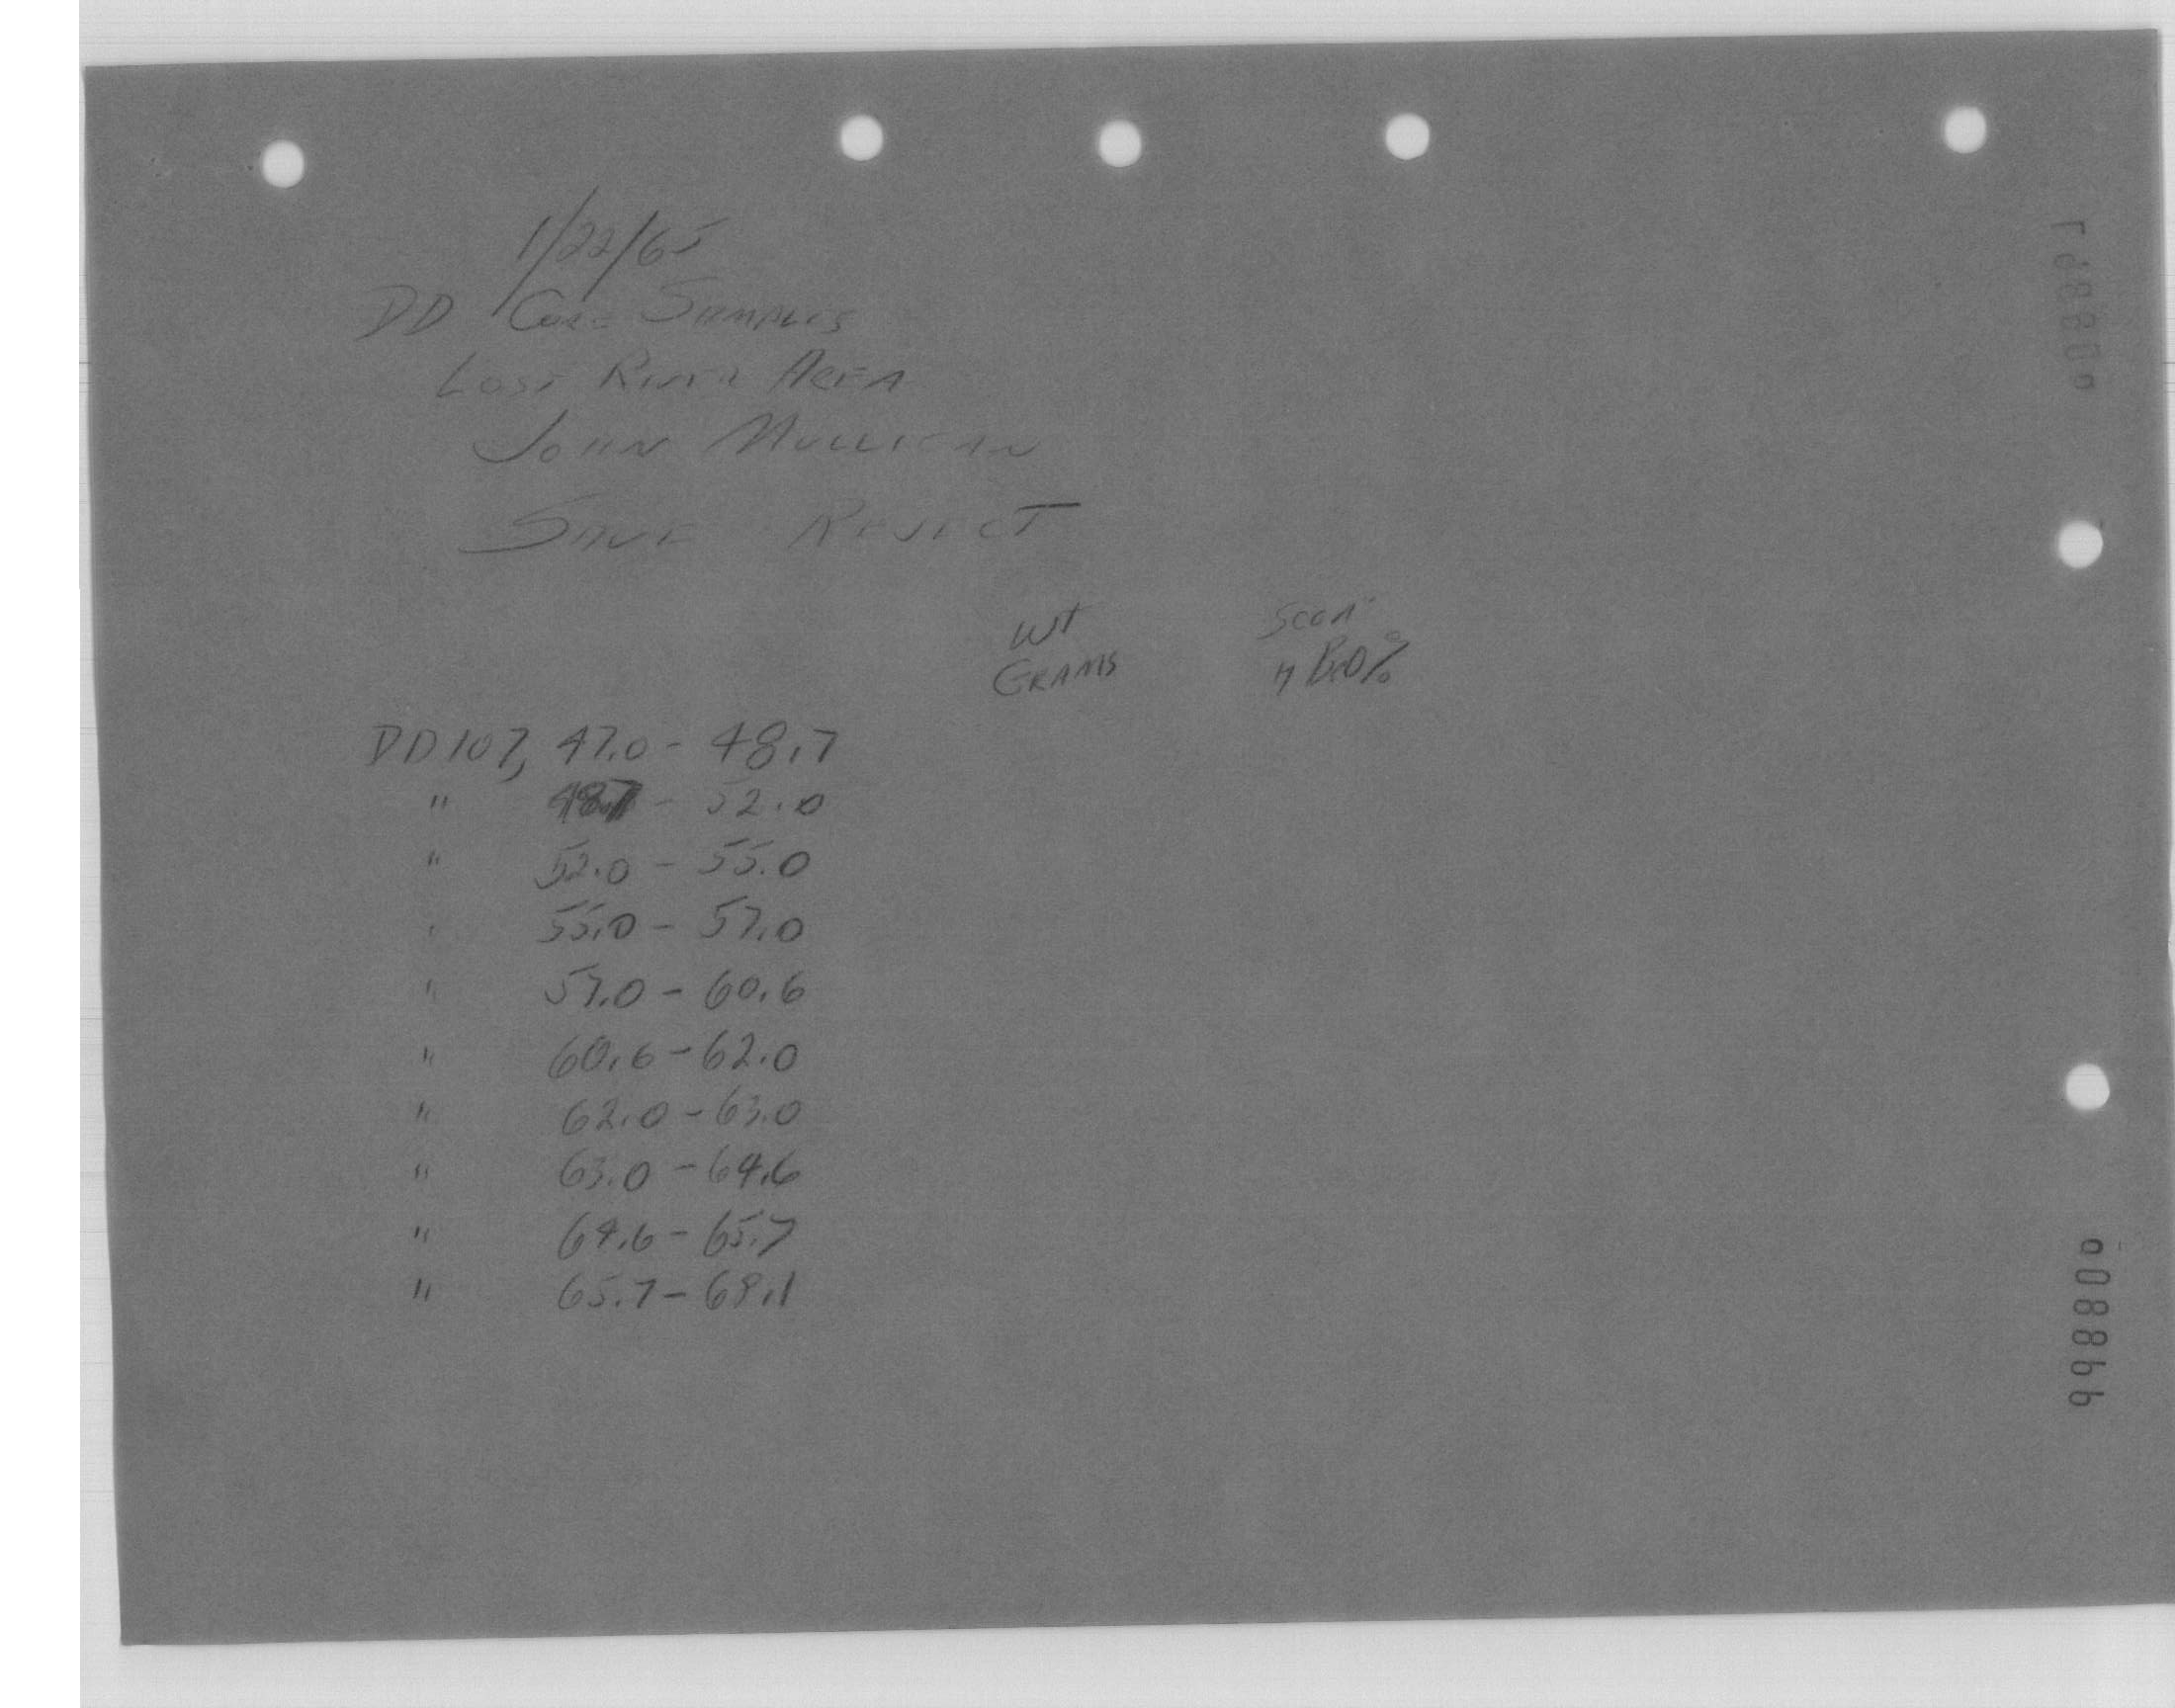 1/22/65
DD Core Samples
Lost River Area
John Mulligan
Save Reject
Wt
Grams
BeO%
DD107, 47.0 - 48.7
" 48.7 - 52.0
" 52.0 - 55.0
" 55.0 - 57.0
" 57.0 - 60.6
" 60.6 - 62.0
" 62.0 - 63.0
" 63.0 - 64.6
" 64.6 - 65.7
" 65.7 - 68.1